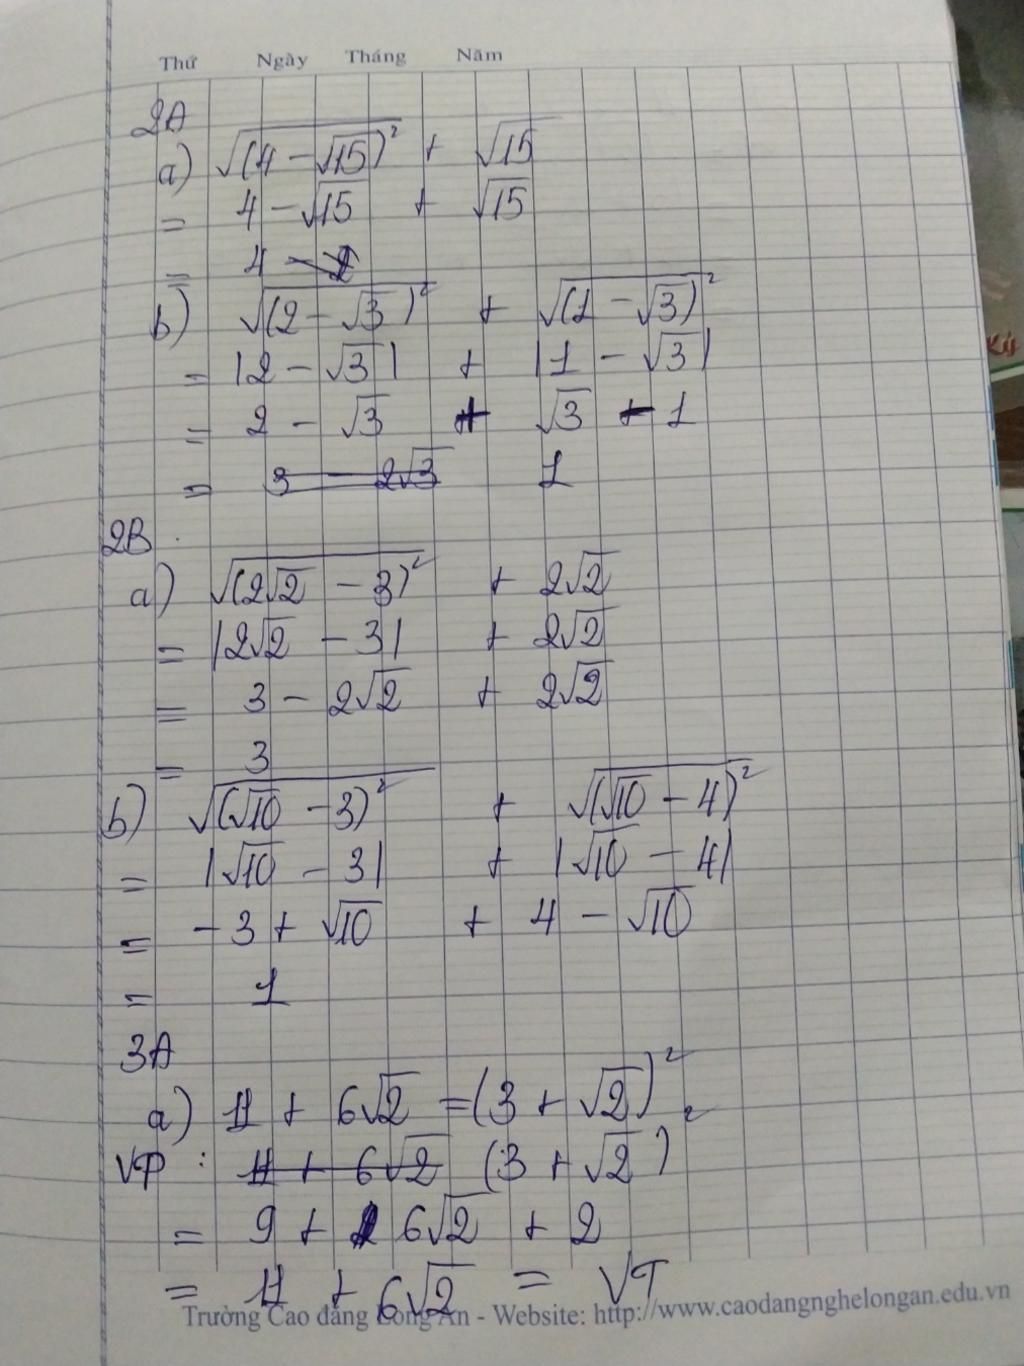 Thứ Ngày Tháng Năm
2A
a) √(4 − √15)² + √15
= 4 − √15 + √15
= 4
b) √(2 − √3)² + √(1 − √3)²
= |2 − √3| + |1 − √3|
= 2 − √3 + √3 − 1
= 3 − 2√3 1
2B
a) √(2√2 − 3)² + 2√2
= |2√2 − 3| + 2√2
= 3 − 2√2 + 2√2
= 3
b) √(√10 − 3)² + √(√10 − 4)²
= |√10 − 3| + |√10 − 4|
= −3 + √10 + 4 − √10
= 1
3A
a) 11 + 6√2 = (3 + √2)²
VP : 11 + 6√2 (3 + √2)²
= 9 + 6√2 + 2
= 11 + 6√2 = VT
Trường Cao đẳng Long An - Website: http://www.caodangnghelongan.edu.vn